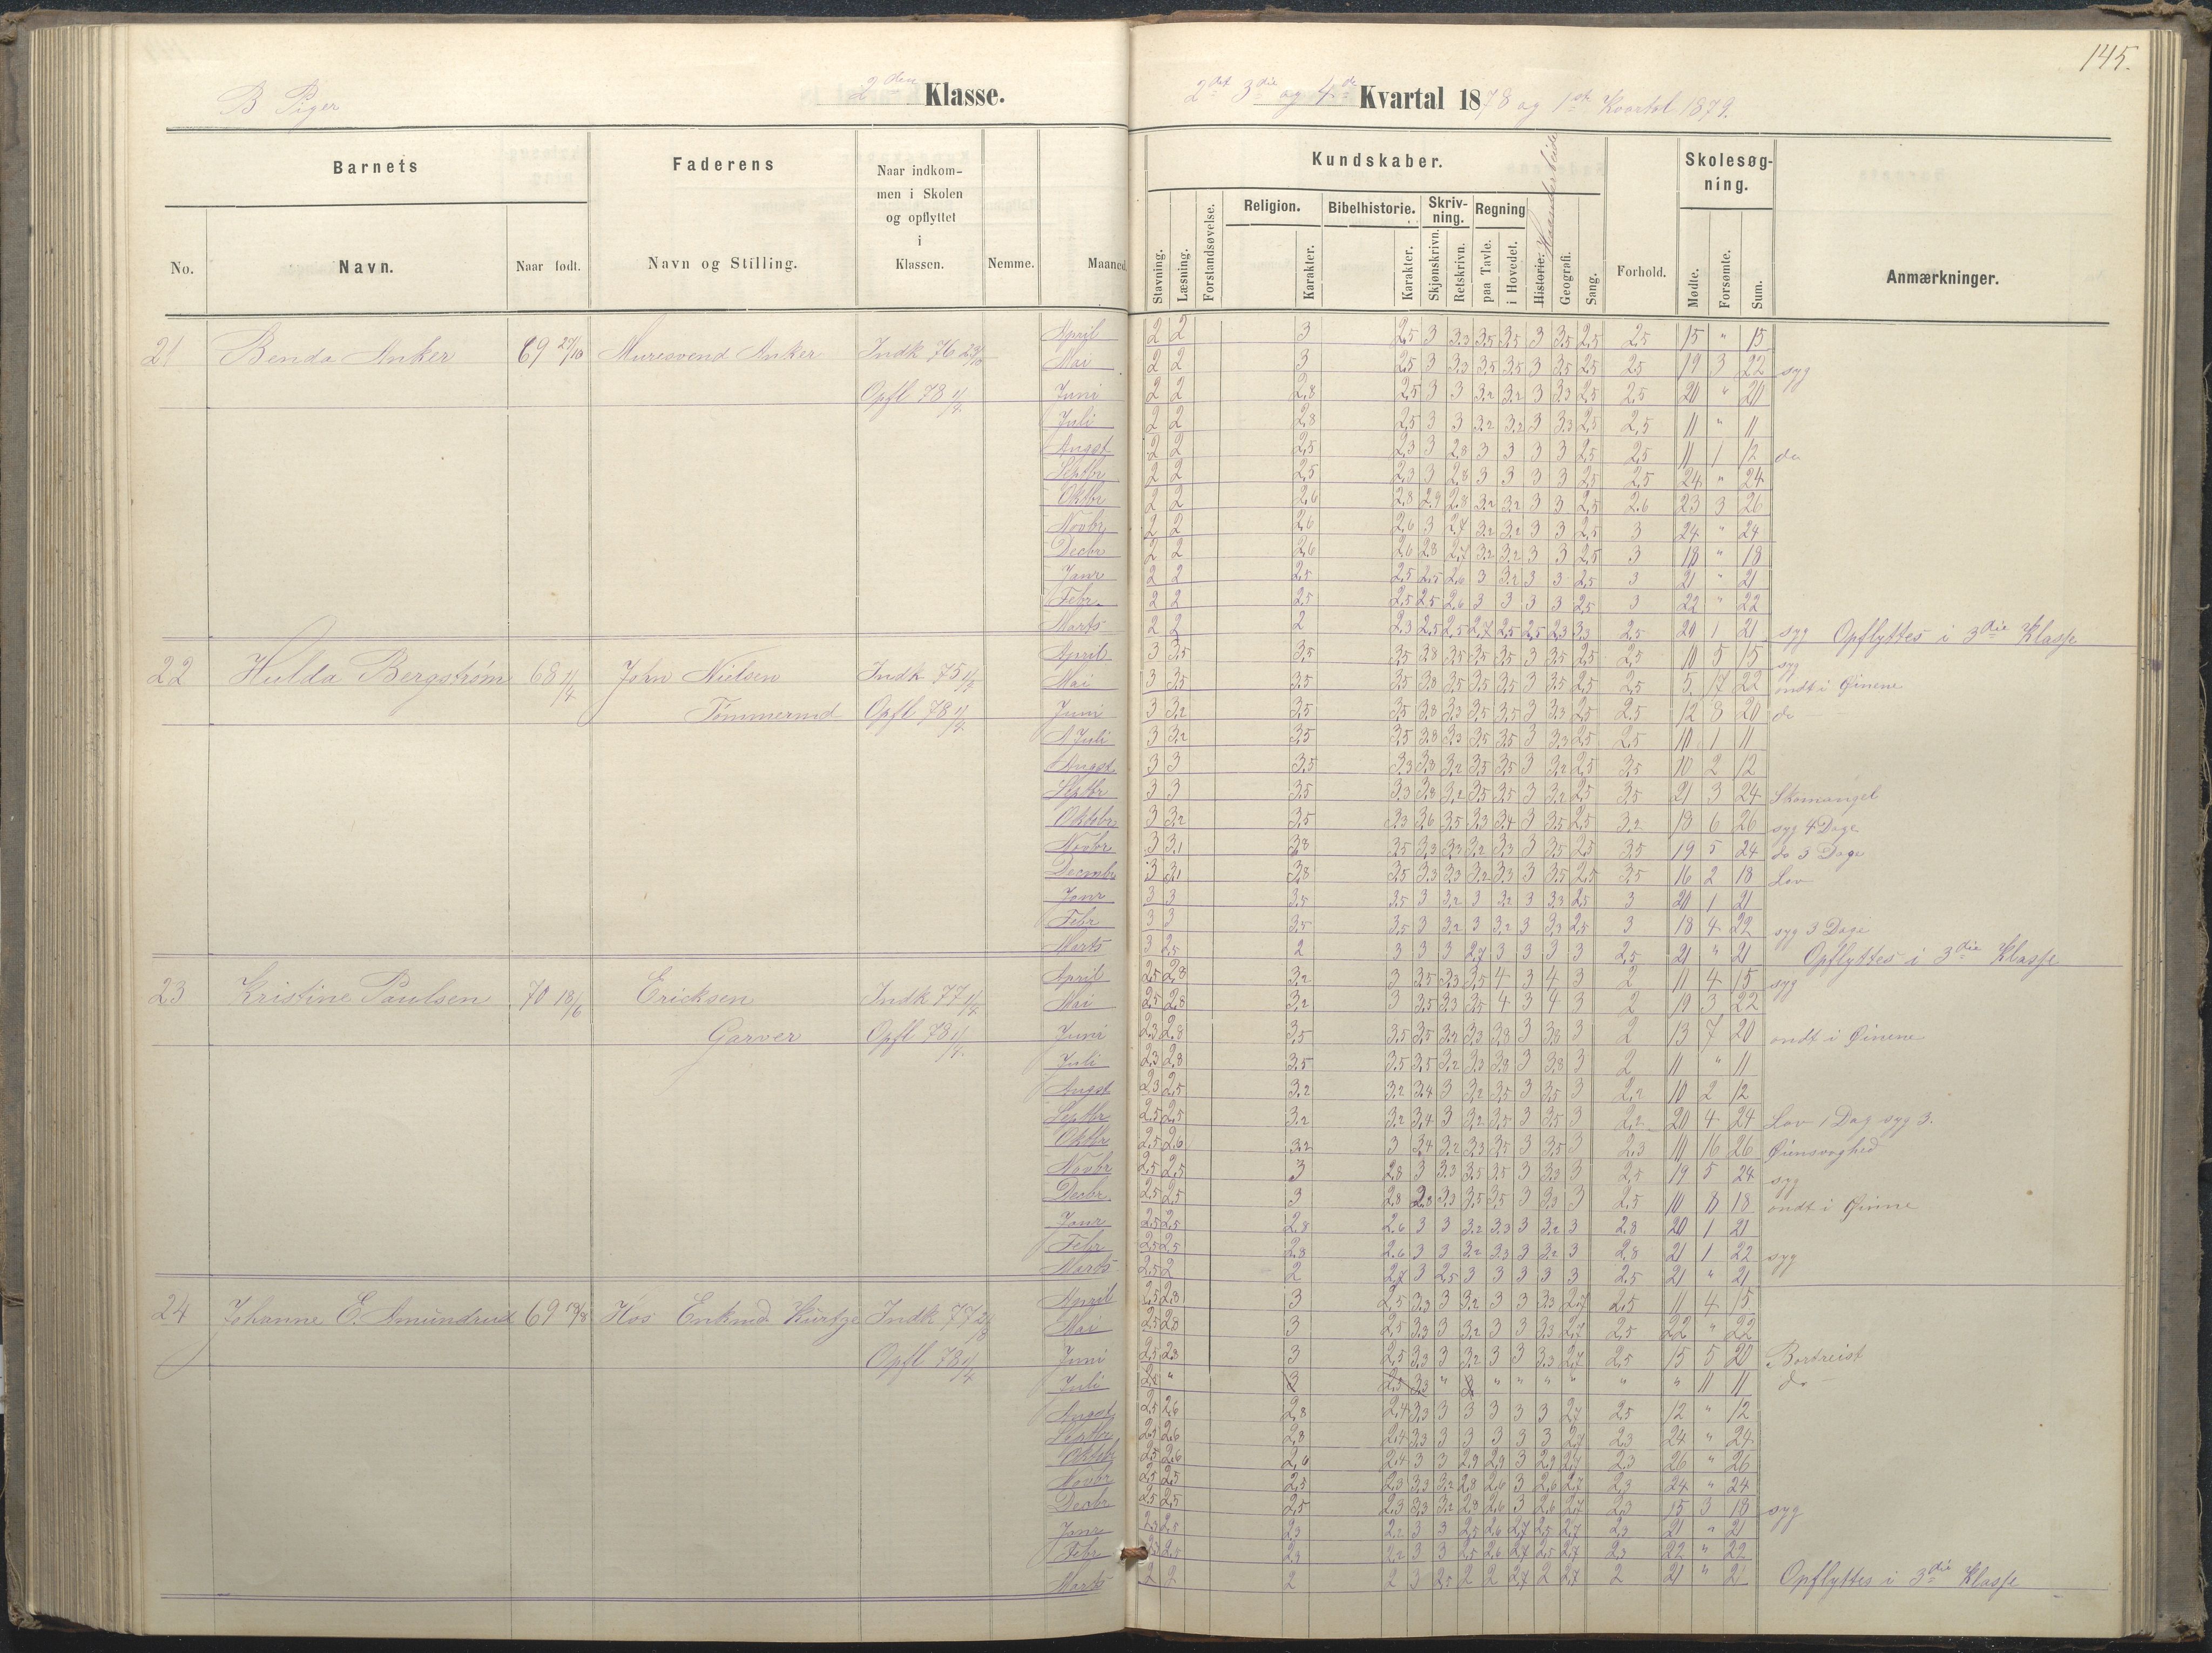 145.
B Piger
2den Klasse.
2det 3die og 4de Kvartal 1878 og 1ste Kvartal 1879.
Barnets
Faderens
Naar indkommen i Skolen og opflyttet i Klassen.
Nemme.
Maaned.
No.
Navn.
Naar født.
Navn og Stilling.
Kundskaber.
Haandarbeide
Skolesøgning.
Stavning.
Læsning.
Forstandsøvelse.
Religion.
Karakter.
Bibelhistorie.
Karakter.
Skrivning.
Skjønskrivn.
Retskrivn.
Regning
paa Tavle.
i Hovedet.
Historie.
Geografi.
Sang.
Forhold.
Møde.
Forsømte.
Sum.
Anmærkninger.
21 Benda Anker 69 27/10 Muresvend Anker Indk 76
Opfl 78 1/4
April 2 2 3 2,5 3 3,3 3,5 3,5 3 3,5 2,5 2,5 15 " 15
Mai 2 2 3 2,5 3 3,3 3,5 3,5 3 3,5 2,5 2,5 19 3 22 syg
Juni 2 2 2,8 2,5 3 3 3,2 3,2 3 3,3 2,5 2,5 20 " 20
Juli 2 2 2,8 2,5 3 3 3,2 3,2 3 3,3 2,5 2,5 11 " 11
Augst 2 2 2,5 2,3 3 2,8 3 3 3 3 2,5 2,5 11 1 12 do
Septbr 2 2 2,5 2,3 3 2,8 3 3 3 3 2,5 2,5 24 " 24
Oktbr 2 2 2,6 2,8 2,9 2,8 3,2 3,2 3 3 2,5 2,6 23 3 26
Novbr 2 2 2,6 2,6 3 2,7 3,2 3,2 3 3 2,5 3 24 " 24
Decbr 2 2 2,6 2,6 2,8 2,7 3,2 3,2 3 3 2,5 3 18 " 18
Janr 2 2 2,5 2,5 2,5 2,6 3 3,2 3 3 2,5 3 21 " 21
Febr. 2 2 2,5 2,5 2,5 2,6 3 3 3 3 2,5 3 22 " 22
Marts 2 2 2 2,3 2,5 2,5 2,7 2,5 2,5 2,3 3,3 2,5 20 1 21 syg Opflyttes i 3die Klasse
22 Hulda Bergstrøm 68 11/4 John Nielsen Indk 75 1/4
Tømmermd Opfl 78 1/4
April 3 3,5 3,5 3,5 3,8 3,5 3,5 3,5 3 3,5 2,5 2,5 10 5 15 syg
Mai 3 3,5 3,5 3,5 3,8 3,5 3,5 3,5 3 3,5 2,5 2,5 5 17 22 ondt i Øinene
Juni 3 3,2 3,5 3,5 3,8 3,3 3,5 3,5 3 3,3 2,5 2,5 12 8 20 do
Juli 3 3,2 3,5 3,5 3,8 3,3 3,5 3,5 3 3,3 2,5 2,5 10 1 11
Augst 3 3 3,5 3,3 3,8 3,2 3,5 3,5 3 3,2 2,5 3,5 10 2 12
Septbr 3 3 3,5 3,3 3,8 3,2 3,5 3,5 3 3,2 2,5 3,5 21 3 24 Skomangel
Oktobr 3 3,2 3,5 3,3 3,6 3,5 3,3 3,4 3 3,5 2,5 3,2 18 6 26 syg 4 Dage
Novbr 3 3,1 3,8 3,5 3,3 3,3 3,2 3,3 3 3,5 2,5 3,5 19 5 24 do 3 Dage
Decmbr 3 3,1 3,8 3,5 3,3 3,3 3,2 3,3 3 3,5 2,5 3,5 16 2 18 Lov
Janr 3 3 3,5 3,5 3 3,2 3 3,2 3 3,3 2,5 3 20 1 21
Febr 3 3 3,5 3,5 3 3,2 3 3,2 3 3,3 2,5 3 18 4 22 syg 3 Dage
Marts 3 2,5 2 3 3 3 2,7 3 3 3 3 2,5 21 " 21 Opflyttes i 3die Klasse
23 Kristine Paulsen 70 18/6 Ericksen Indk 77 1/4
Garver Opfl 78 1/4
April 2,5 2,8 3,2 3 3,5 3,3 3,5 4 3 4 3 2 11 4 15 syg
Mai 2,5 2,8 3,2 3 3,5 3,3 3,5 4 3 4 3 2 19 3 22
Juni 2,3 2,8 3,5 3,5 3,5 3,2 3,3 3,8 3 3,8 3 2 13 7 20 ondt i Øinene
Juli 2,3 2,8 3,5 3,5 3,5 3,2 3,3 3,8 3 3,8 3 2 11 " 11
Augst 2,3 2,5 3,2 3,2 3,4 3 3,2 3,5 3 3,5 3 2,2 10 2 12
Septbr 2,5 2,5 3,2 3,2 3,4 3 3,2 3,5 3 3,5 3 2,2 20 4 24 Lov 1 Dag syg 3.
Oktbr 2,5 2,6 3,2 3 3,4 3,2 3,3 3,5 3 3,5 3 2,3 10 16 26 Øiensvaghed
Novbr 2,5 2,5 3 2,8 3 3,3 3,5 3,5 3 3,3 3 2,5 19 5 24 syg
Decbr 2,5 2,5 3 2,8 2,8 3,3 3,5 3,5 3 3,3 3 2,5 10 8 18 ondt i Øinne
Janr 2,5 2,5 2,8 2,6 3 3 3,2 3,3 3 3,2 3 2,8 20 1 21
Febr 2,5 2,5 2,8 2,6 3 3 3,2 3,3 3 3,2 3 2,8 21 1 22 syg
Marts 2,5 2 2 2,7 3 2,5 3 3 3 3 3 2,5 21 " 21
24 Johanne E. Amundrud 69 19/8 Hos Enkmd. Kurtze Indk 77
Opfl 78 1/4
April 2,5 2,3 3 2,5 3,3 3 3,2 3 3 3,3 2,7 2,5 11 4 15
Mai 2,5 2,8 3 2,5 3,3 3 3,2 3 3 3,3 2,7 2,5 22 " 22
Juni 2,5 2,3 3 2,5 3,3 3 3,2 3 3 3,3 2,7 2,5 15 5 20 Bortreist
Juli " 3 2,5 3,3 " 3 " " " " " " 11 11 do
Augst 2,5 2,6 2,8 2,4 3,3 3 3 3 3 3 2,7 2,5 12 " 12
Septbr 2,5 2,6 2,8 2,4 3,3 3 3 3 3 3 2,7 2,3 24 " 24
Oktbr 2,5 2,6 2,6 2,4 3 3 2,9 2,9 3 2,9 2,7 2,3 26 " 26
Novbr 2,5 2,5 2,5 2,3 3,3 3,2 2,8 2,6 3 2,6 2,7 2,3 24 " 24
Decbr 2,5 2,5 2,5 2,3 3,3 3,2 2,8 2,6 3 2,6 2,7 2,3 15 3 18 syg
Janr 2,3 2,5 2,3 2,2 3 3 2,5 2,6 2,7 2,5 2,7 2,3 21 " 21
Febr 2,3 2,5 2,3 2,2 3 3 2,5 2,6 2,7 2,5 2,7 2,3 22 " 22
Marts 2 2 2 2 3 2,5 2 2 2,7 2 2,7 2 21 " 21 Opflyttes i 3die Klasse